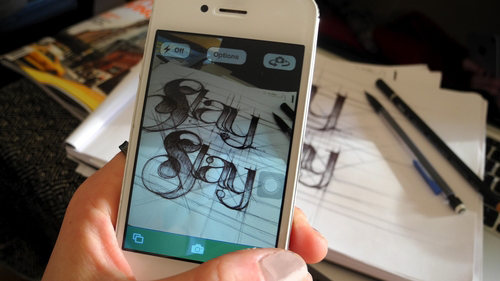 Off
Options
Stay
Stay
ay
ay